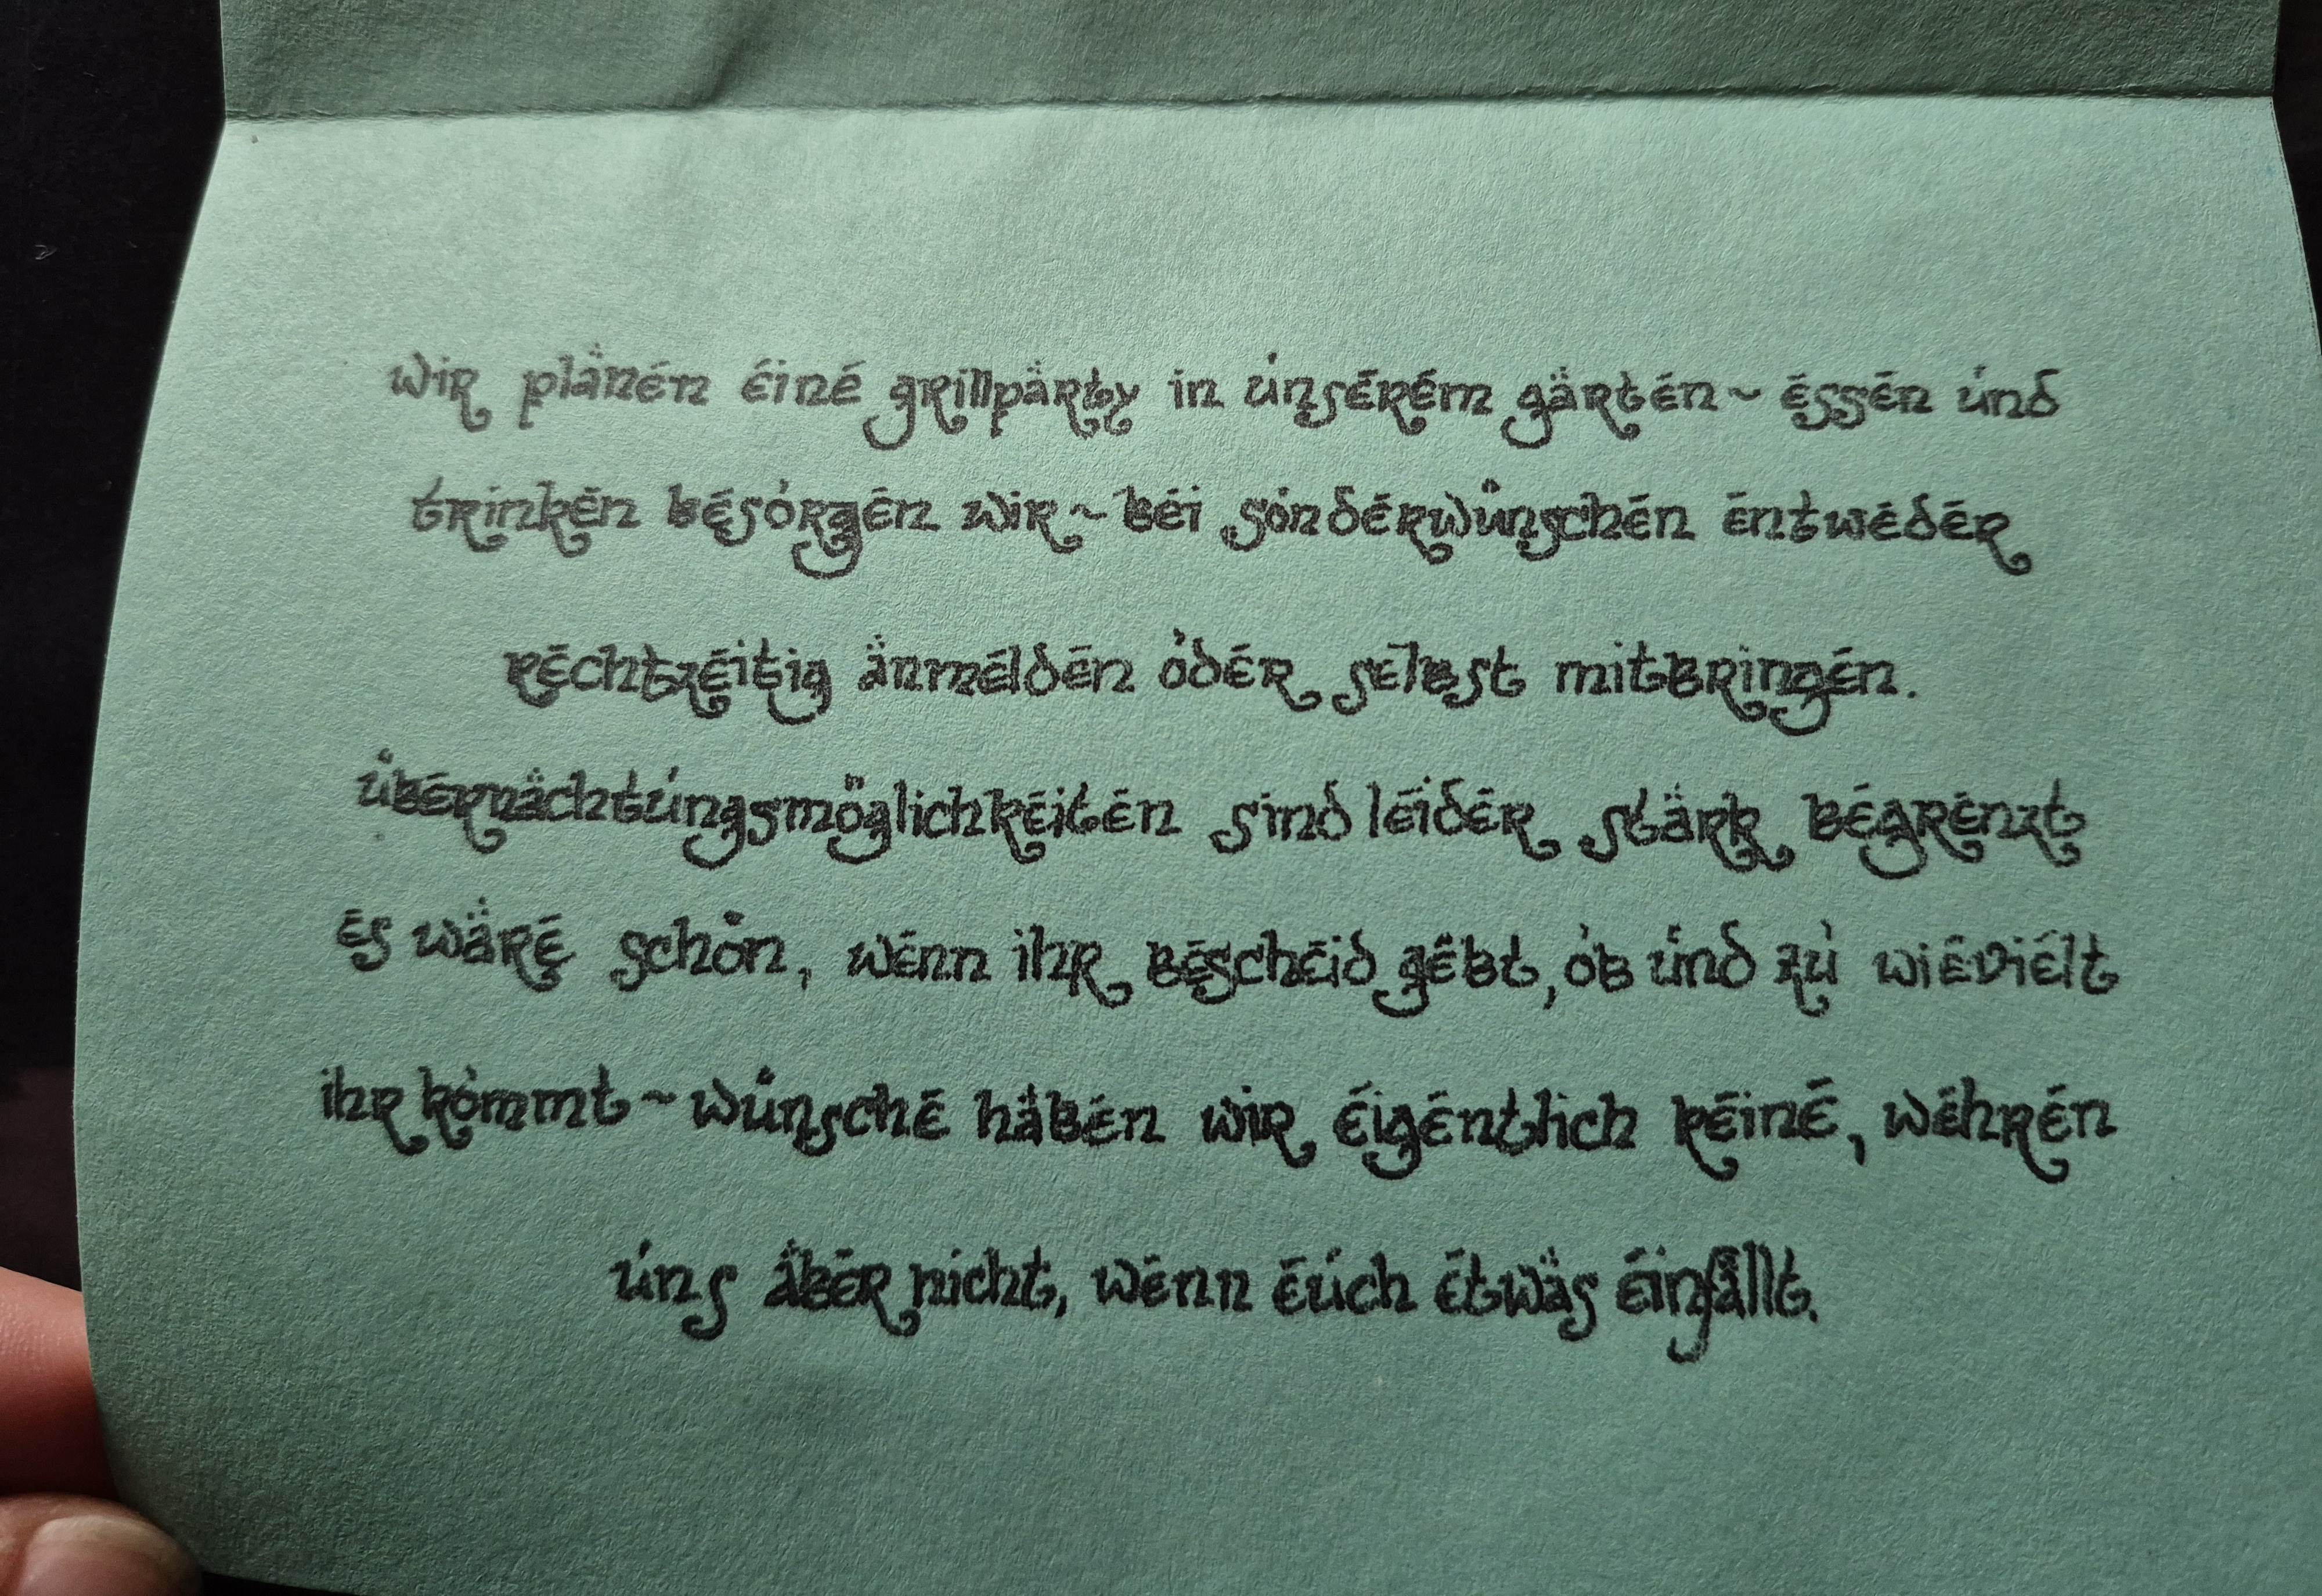 wir planen eine grillparty in unserem garten ~ essen und
trinken besorgen wir ~ bei sonderwünschen entweder
rechtzeitig anmelden oder selbst mitbringen.
übernachtungsmöglichkeiten sind leider stark begrenzt
es wäre schön, wenn ihr bescheid gebt, ob und zu wievielt
ihr kommt ~ wünsche haben wir eigentlich keine, wehren
uns aber nicht, wenn euch etwas einfällt.